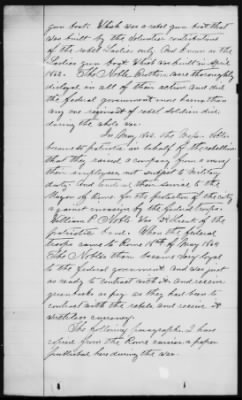 gun boat. Which was a rebel gun boat that
was built by the voluntary contributions
of the rebel Ladies only. And known as the
Ladies gun boat. What was built in April
1862. The Noble Brothers were thoroughly
disloyal in all of their action and did
the federal government more harm than
any one regiment of rebel soldiers did
during the whole war.
In May 1864 the Messrs Noble
became so patriotic in behalf of the rebellion
that they raised a company from among
their employees not subject to military
duty. And tendered their service to the
Mayor of Rome for the protection of the city
against invasion by the federal troops.
William P. Noble was 2d Lieut of the
patriotic band. When the federal
troops came to Rome 18th of May 1864
The Nobles then became very loyal
to the federal government and was just
as ready to contract with it and receive
greenbacks as pay as they had been to
contract with the rebels and receive it
worthless currency.
The following paragraphs I have
copied from the Rome courier a paper
published here during the war.